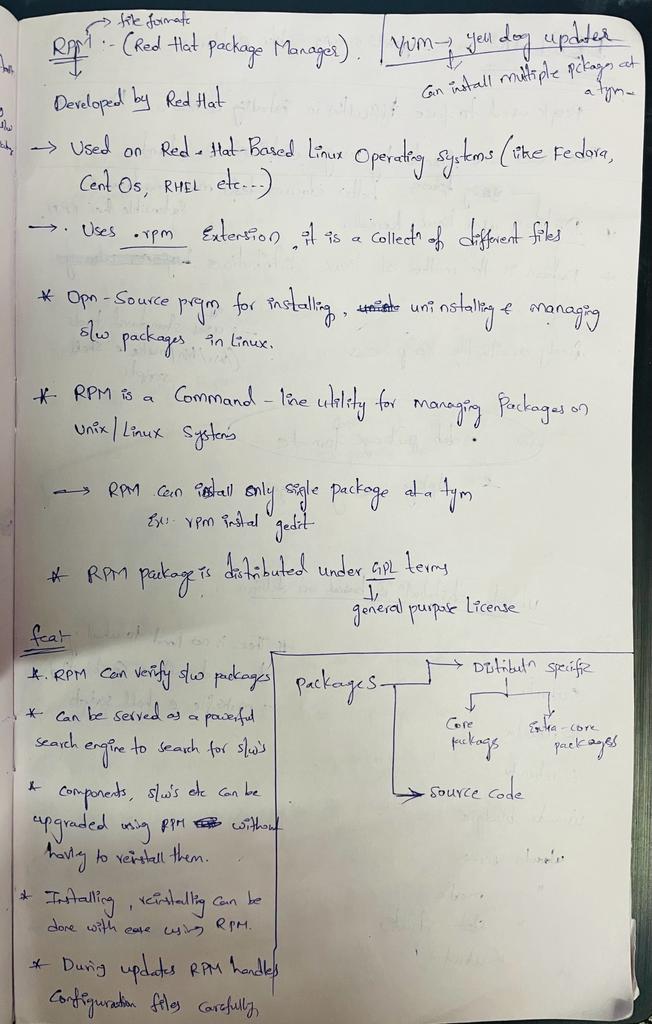 → file formate
RPM :- (Red Hat package Manager).
Developed by Red Hat
YUM → yell dog updater
Can install multiple pckages at
a tym
→ Used on Red-Hat-Based Linux Operating Systems (like Fedora,
Cent Os, RHEL etc...)
→ Uses .rpm Extension, it is a Collectn of different files
* Opn-Source prgm for installing, uninstalling & managing
s/w packages in Linux.
* RPM is a Command-line utility for managing Packages on
Unix/Linux Systems
→ RPM can install only sigle package at a tym
Ex:- rpm instal gedit
* RPM package is distributed under GPL terms
general purpose License
feat
* RPM Can verify s/w packages
* Can be served as a powerful
search engine to search for s/w's
* Components, s/w's etc can be
upgraded using RPM without
having to reinstall them.
* Installing, reinstallig can be
done with ease using RPM.
* During updates RPM handles
Configuration files carefully
packages
→ Distributn specific
Core
packags
Extra-core
packages
→ Source code